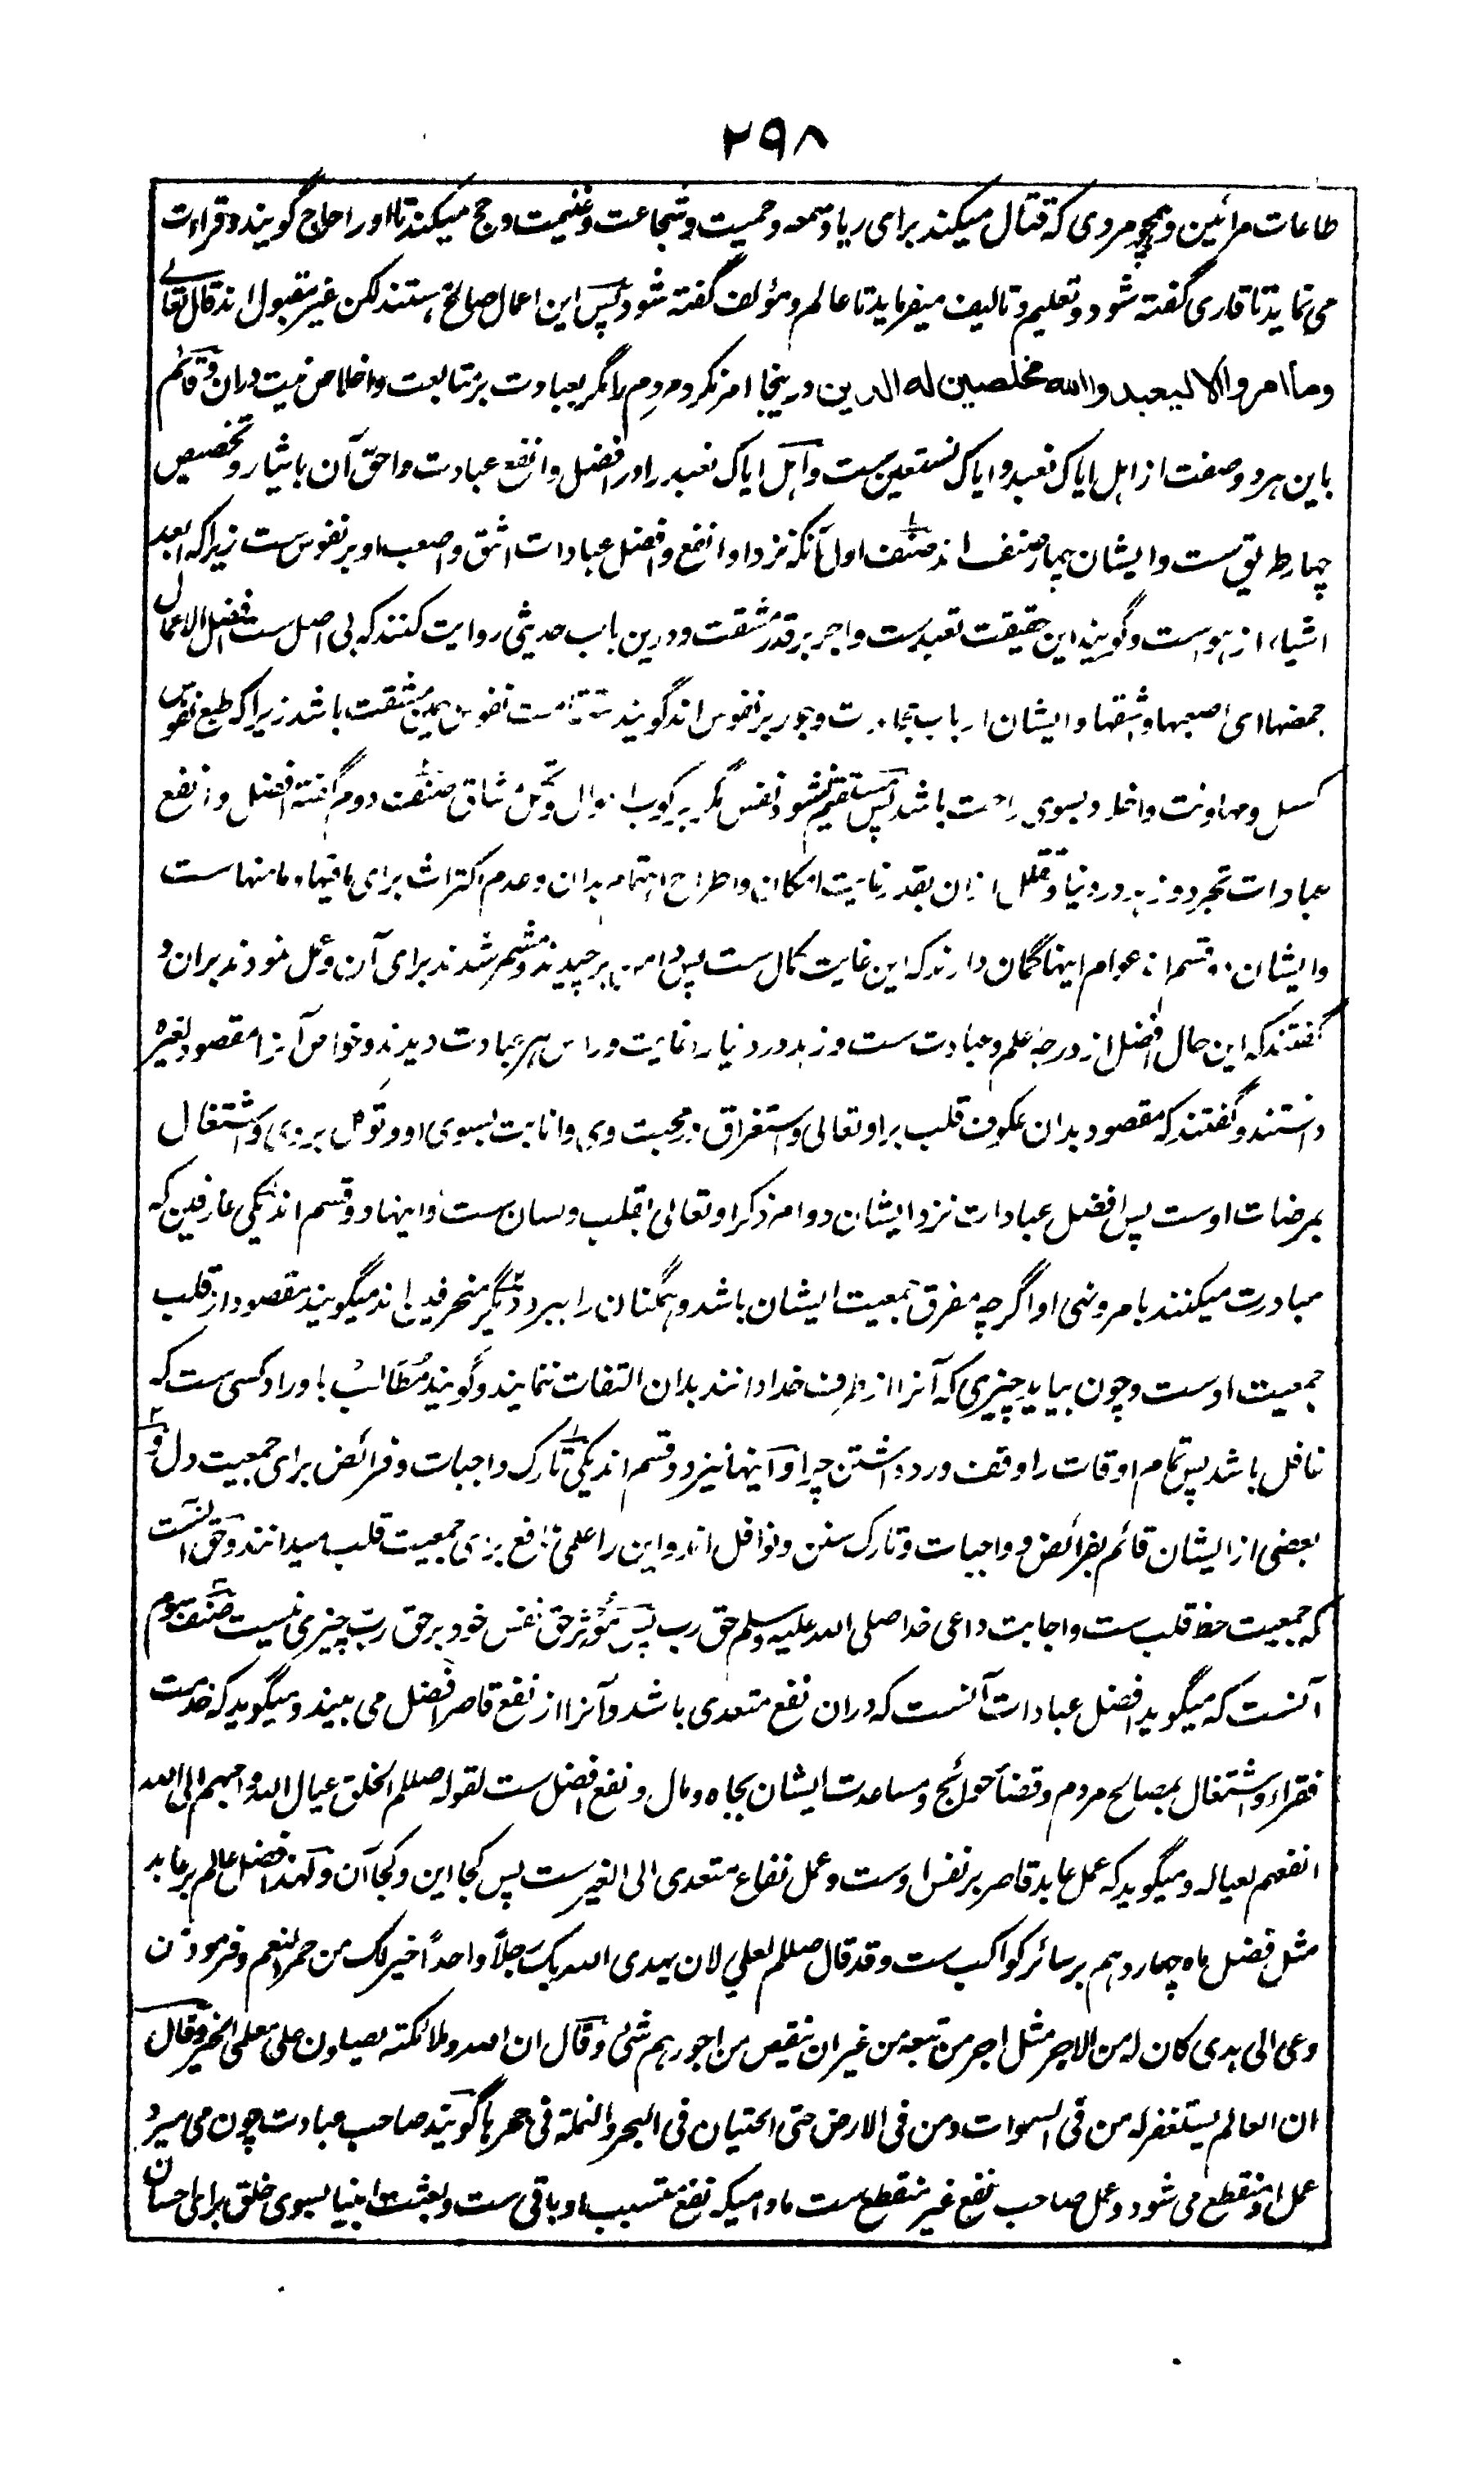 ۲۹۸
طاعات مرائین و همچو مردی که قتال میکند برای ریا و سمعه و حمیت و شجاعت و غنیمت و حج میکند تا او را حاج گویند و قراءت
می نماید تا قاری گفته شود و تعلیم و تالیف میفرماید تا عالم و مؤلف گفته شود پس این اعمال صالح هستند لکن غیر مقبول اند قال تعالے
وما امروا الا لیعبدوا الله مخلصین له الدین درینجا امر نکرد مردم را مگر بعبادت بر متابعت و اخلاص نیت دران و قائم
باین هر دو صفت از اہل ایاک نعبد و ایاک نستعین ست و اہل ایاک نعبد را در افضل و انفع عبادت و احق آن بایثار و تخصیص
چهار طریق ست و ایشان چهار صنف اند صنف اول آنکه نزد او انفع و افضل عبادات اشق و اصعب او بر نفوس ست زیراکه ابعد
اشیاء از هواست و گویند این حقیقت تعبد ست و اجر بر قدر مشقت و درین باب حدیثی روایت کنند که بی اصل ست افضل الاعمال
احمزها ای اصعبها و اشقها و ایشان ارباب مجاهدت و جور بر نفوس اند گویند استقامت نفوس بهمین مشقت باشد زیراکه طبع نفوس
کسل و مهاونت و اخلاد بسوی راحت باشد پس مستقیم نشود نفس مگر برکوب اهوال و تحمل مشاق صنف دوم گفته افضل و انفع
عبادات تجرد و زهد در دنیا و تقلل ازان بقدر غایت امکان و اطراح اهتمام بدان و عدم اکتراث برای مافیها و مامنها ست
و ایشان دو قسم اند عوام اینها گمان دارند که این غایت کمال ست پس دامن برچیدند و مشمر شدند برای آن و عمل نمودند بران و
گفتند که این حال افضل از درجه علم و عبادت ست و زهد در دنیا را غایت و راس هر عبادت دیدند و خواص آنرا مقصود لغیره
دانستند و گفتند که مقصود بدان عکوف قلب بر او تعالی و استغراق در محبت وی و انابت بسوی او و توکل بروی و اشتغال
بمرضات اوست پس افضل عبادات نزد ایشان دوام ذکر او تعالی بقلب و لسان ست و اینها دو قسم اند یکی عارفین که
مبادرت میکنند بامر و نهی او اگرچه مفرق جمعیت ایشان باشد و همگنان را ببرد دیگر منحرفین اند میگویند مقصود از قلب
جمعیت اوست و چون بیاید چیزی که آنرا از طرف خدا دانند بدان التفات ننمایند و گویند مطالب باوراد کسی ست که
غافل باشد پس تمام اوقات را وقف ورد داشتن چرا و اینها نیز دو قسم اند یکی تارک واجبات و فرائض برای جمعیت دل و
بعضی از ایشان قائم بفرائض و واجبات و تارک سنن و نوافل اند و این را علمی نافع برای جمعیت قلب میدانند و حق آنست
که جمعیت حظ قلب ست و اجابت داعی خدا صلی الله علیه وسلم حق رب پس مؤثر حق نفس خود بر حق رب چیزی نیست صنف سوم
آنست که میگوید افضل عبادات آنست که دران نفع متعدی باشد و آنرا از نفع قاصر افضل می بیند و میگوید که خدمت
فقراء و اشتغال بمصالح مردم و قضاء حوائج و مساعدت ایشان بجاه و مال و نفع افضل ست لقوله صللم الخلق عیال الله و احبهم الی الله
انفعهم لعیاله و میگوید که عمل عابد قاصر بر نفس اوست و عمل نفاع متعدی الی الغیر ست پس کجا این و کجا آن و لهذا فضل عالم بر عابد
مثل فضل ماه چهاردهم بر سائر کواکب ست و قد قال صللم لعلي لان یهدی الله بک رجلاً واحداً خیر لک من حمر النعم و فرمود من
دعی الی هدی کان له من الاجر مثل اجر من تبعه من غیر ان ینقص من اجورهم شئ و قال ان الله و ملائکته یصلون علی معلمی الخیر و قال
ان العالم یستغفر له من فی السموات و من فی الارض حتی الحیتان فی البحر و النملة فی جحرها گویند صاحب عبادت چون می میرد
عمل او منقطع می شود و عمل صاحب نفع غیر منقطع ست مادامیکه نفع متسبب او باقی ست و بعثت انبیا بسوی خلق برای احسان